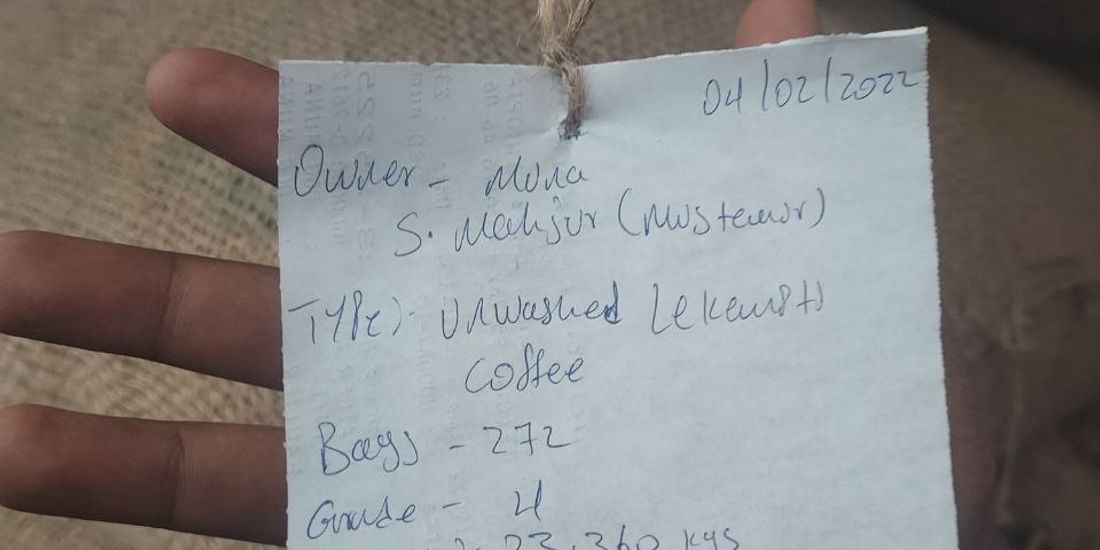 04/02/2022
Owner - Mona
S. Mahjur (Mustemir)
Type:- Unwashed Lekempti
Coffee
Bags - 272
Grade - 4
23,360 kgs